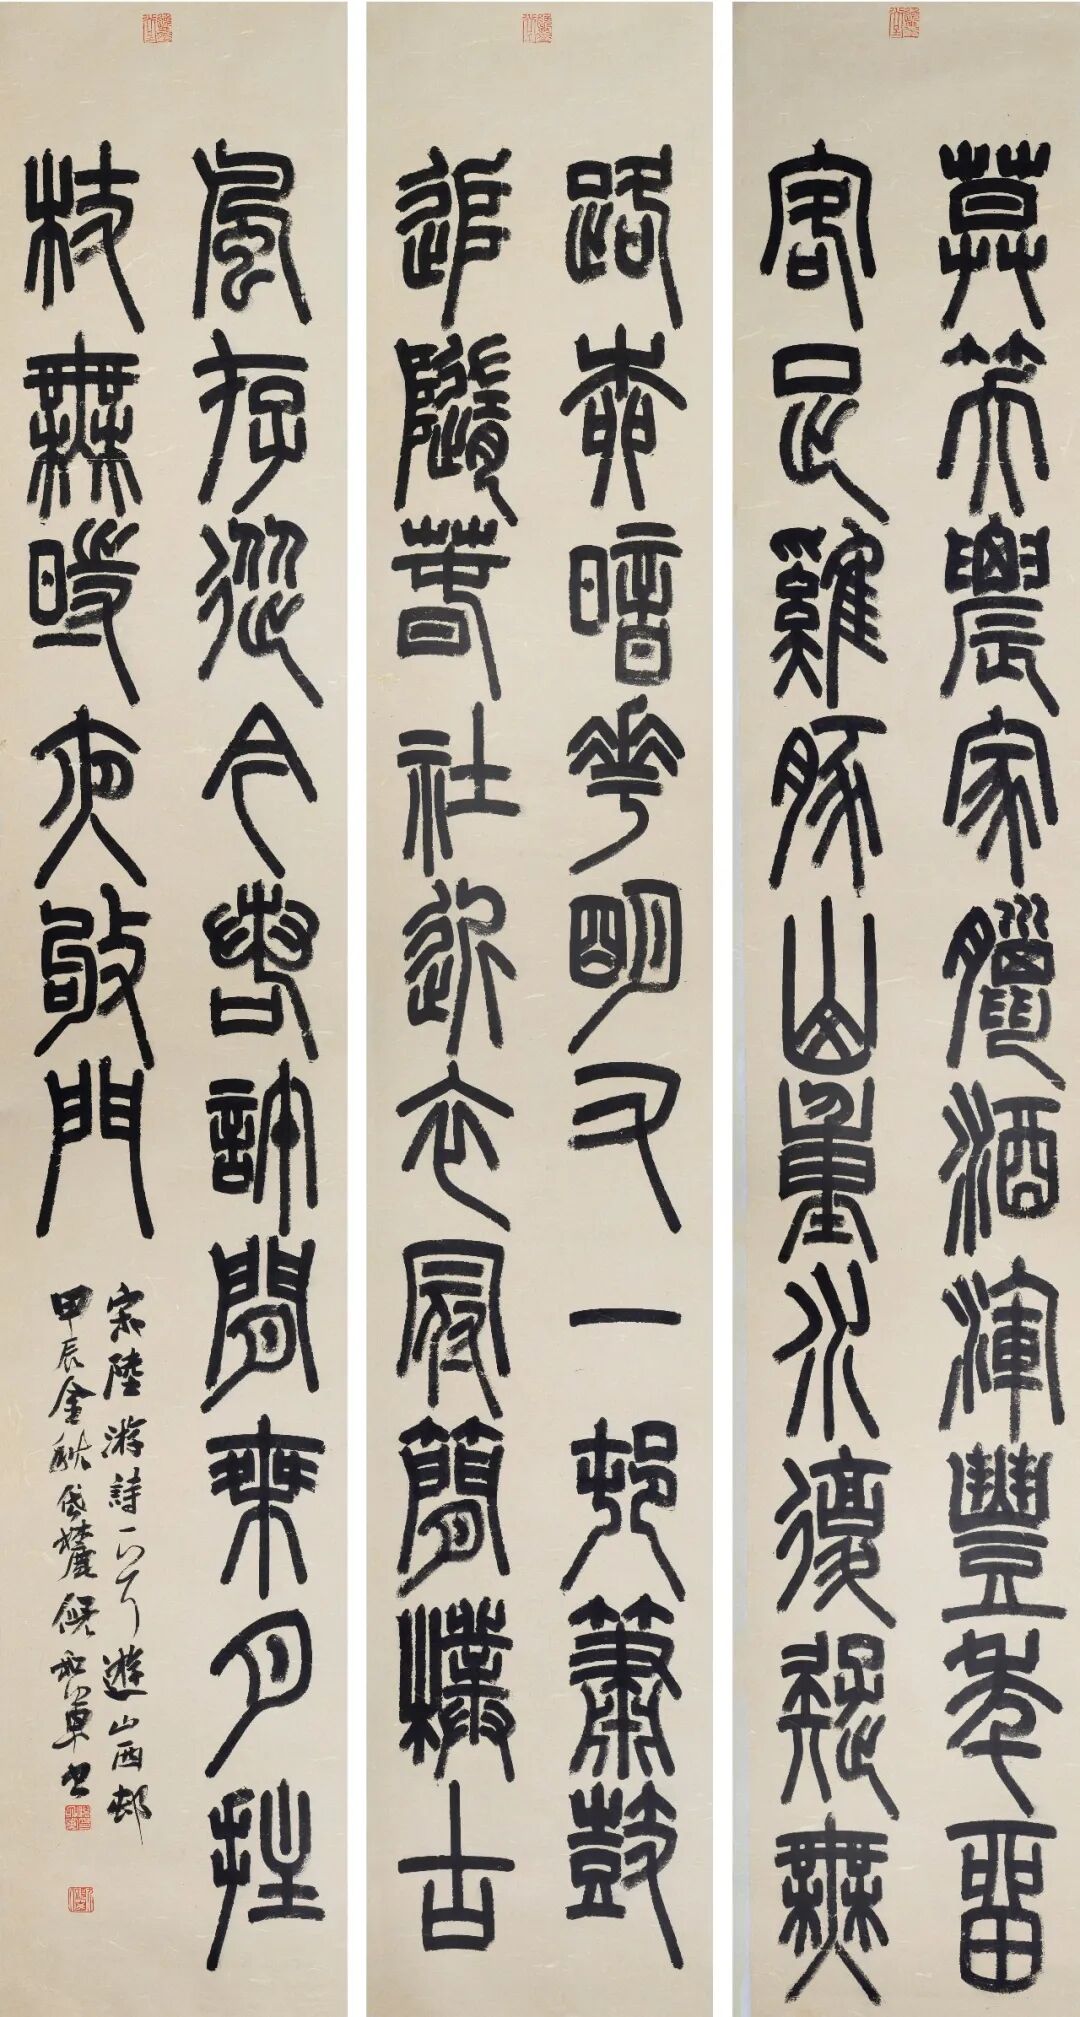 莫笑農家臘酒渾豐年留
客足雞豚山重水複疑無
路柳暗花明又一邨簫鼓
追隨春社近衣冠簡樸古
風存從今若許閒乘月拄
杖無時夜敲門
宋陸游詩一首遊山西邨
甲辰金秋岱麓倪和軍書